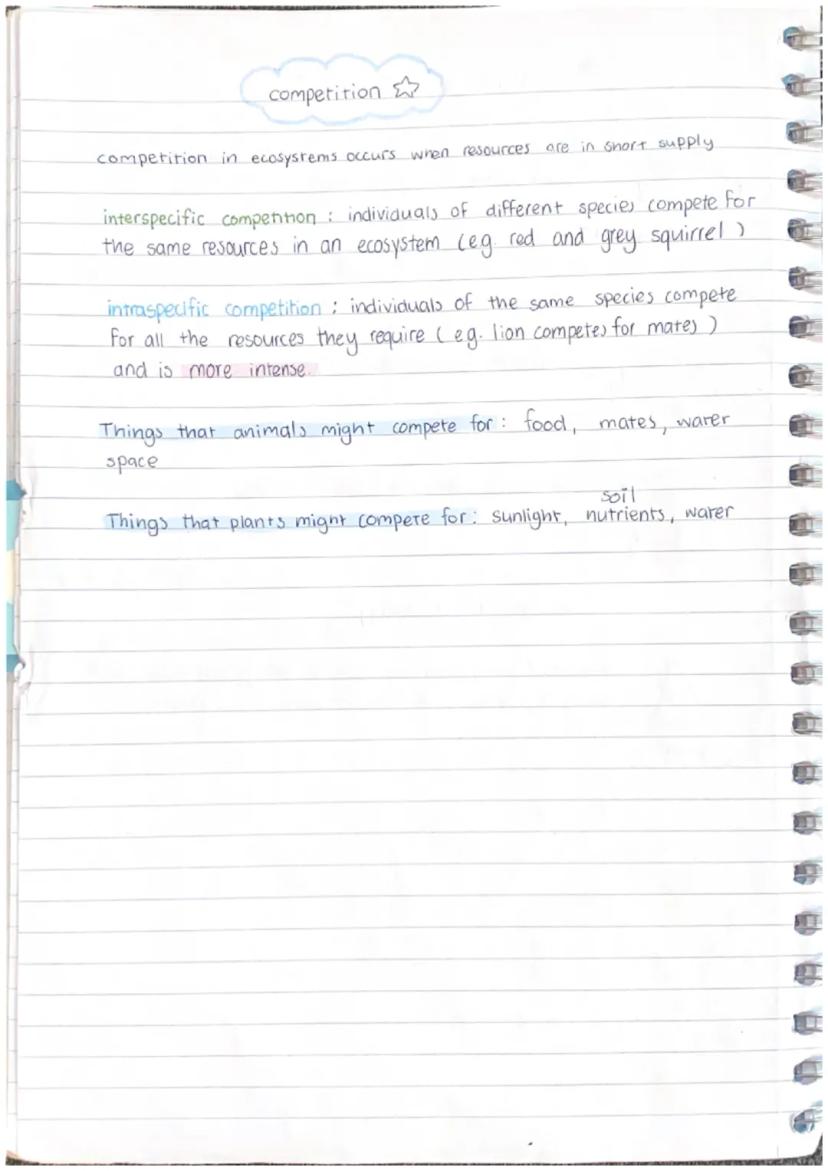 competition ☆
competition in ecosystems occurs when resources are in short supply
interspecific competition : individuals of different species compete for
the same resources in an ecosystem (eg. red and grey squirrel )
intraspecific competition : individuals of the same species compete
for all the resources they require ( eg. lion competes for mates )
and is more intense.
Things that animals might compete for : food, mates, water
space
soil
Things that plants might compete for : sunlight, nutrients, water